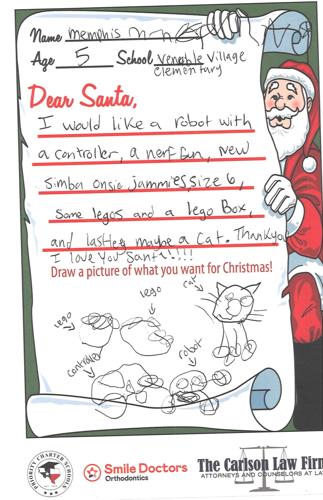 Name Memphis
Age 5 School Venable Village
Elementary
Dear Santa,
I would like a robot with
a controller, a nerf gun, new
simba onsie jammies size 6,
some legos and a lego Box,
and lastley maybe a cat. Thankyou
I love You Santa!!!!
Draw a picture of what you want for Christmas!
cat
lego
lego
controller
robot
PRIORITY CHARTER SCHOOLS
Smile Doctors
Orthodontics
The Carlson Law Firm
ATTORNEYS AND COUNSELORS AT LA